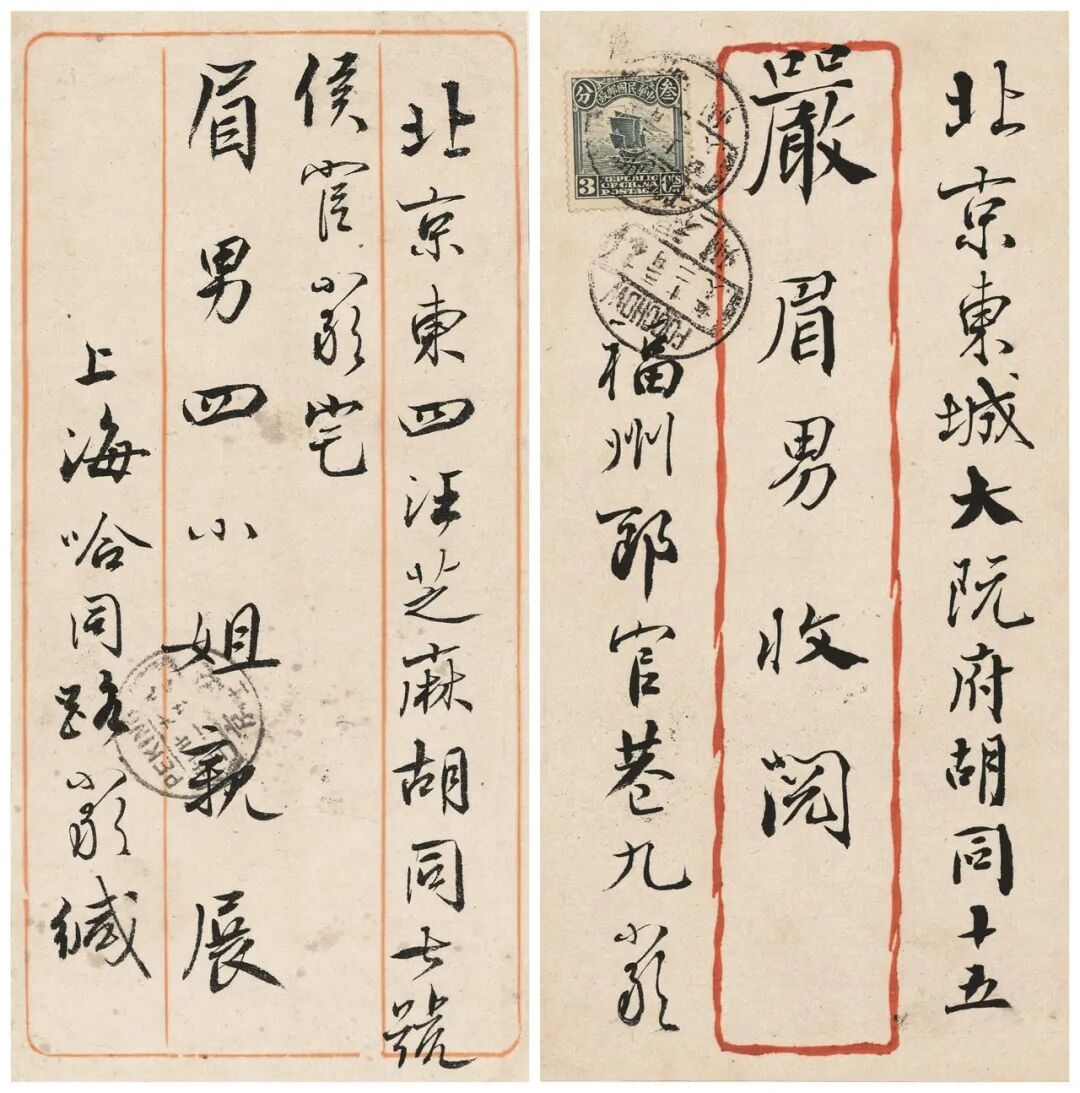 北京東四汪芝麻胡同七號
侯官嚴宅
眉男四小姐親展
上海哈同路嚴緘
PEKING
北京東城大阮府胡同十五
嚴眉男收閱
福州郎官巷九嚴
叁分
中華民國郵政
3 REPUBLIC OF CHINA POSTAGE CTS
FOOCHOW